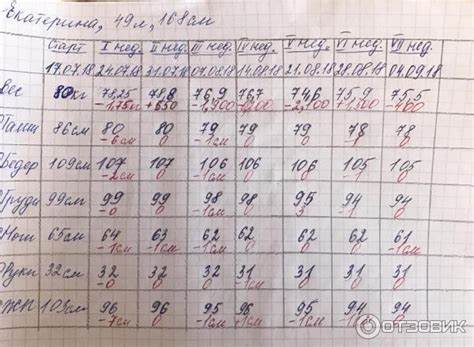 Екатерина, 49л, 168см
Старт I нед. II нед. III нед. IV нед. V нед. VI нед. VII нед.
17.07.18 24.07.18 31.07.18 07.08.18 14.08.18 21.08.18 28.08.18 04.09.18
Вес 80кг 78,25 78,8 76,9 76,7 74,6 75,9 75,5
-1,750 +650 -2,100 -400
Талии 86см 80 80 79 79 79 78 78
-6см 0 -1см 0 0 -1 0
Бедер 109см 107 107 106 106 106 105 105
-2см 0 -1см 0 0 -1 0
Груди 99см 99 99 98 98 95 94 94
-0 0 -1см 0 3 -1 0
Ноги 65см 64 63 62 62 62 62 61
-1см -1см -1см 0 0 0 -1см
Руки 32см 32 32 32 31 31 31 31
-0 0 0 -1см 0 0 0
ЖП 103см 96 96 95 96 95 94 94
-7см 0 -1см +1см -1см -1см 0
ОТЗОВИК